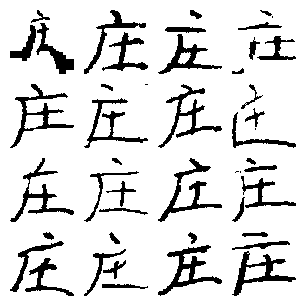 庄庄庄
庄庄庄庄
庄庄庄庄
庄庄庄庄